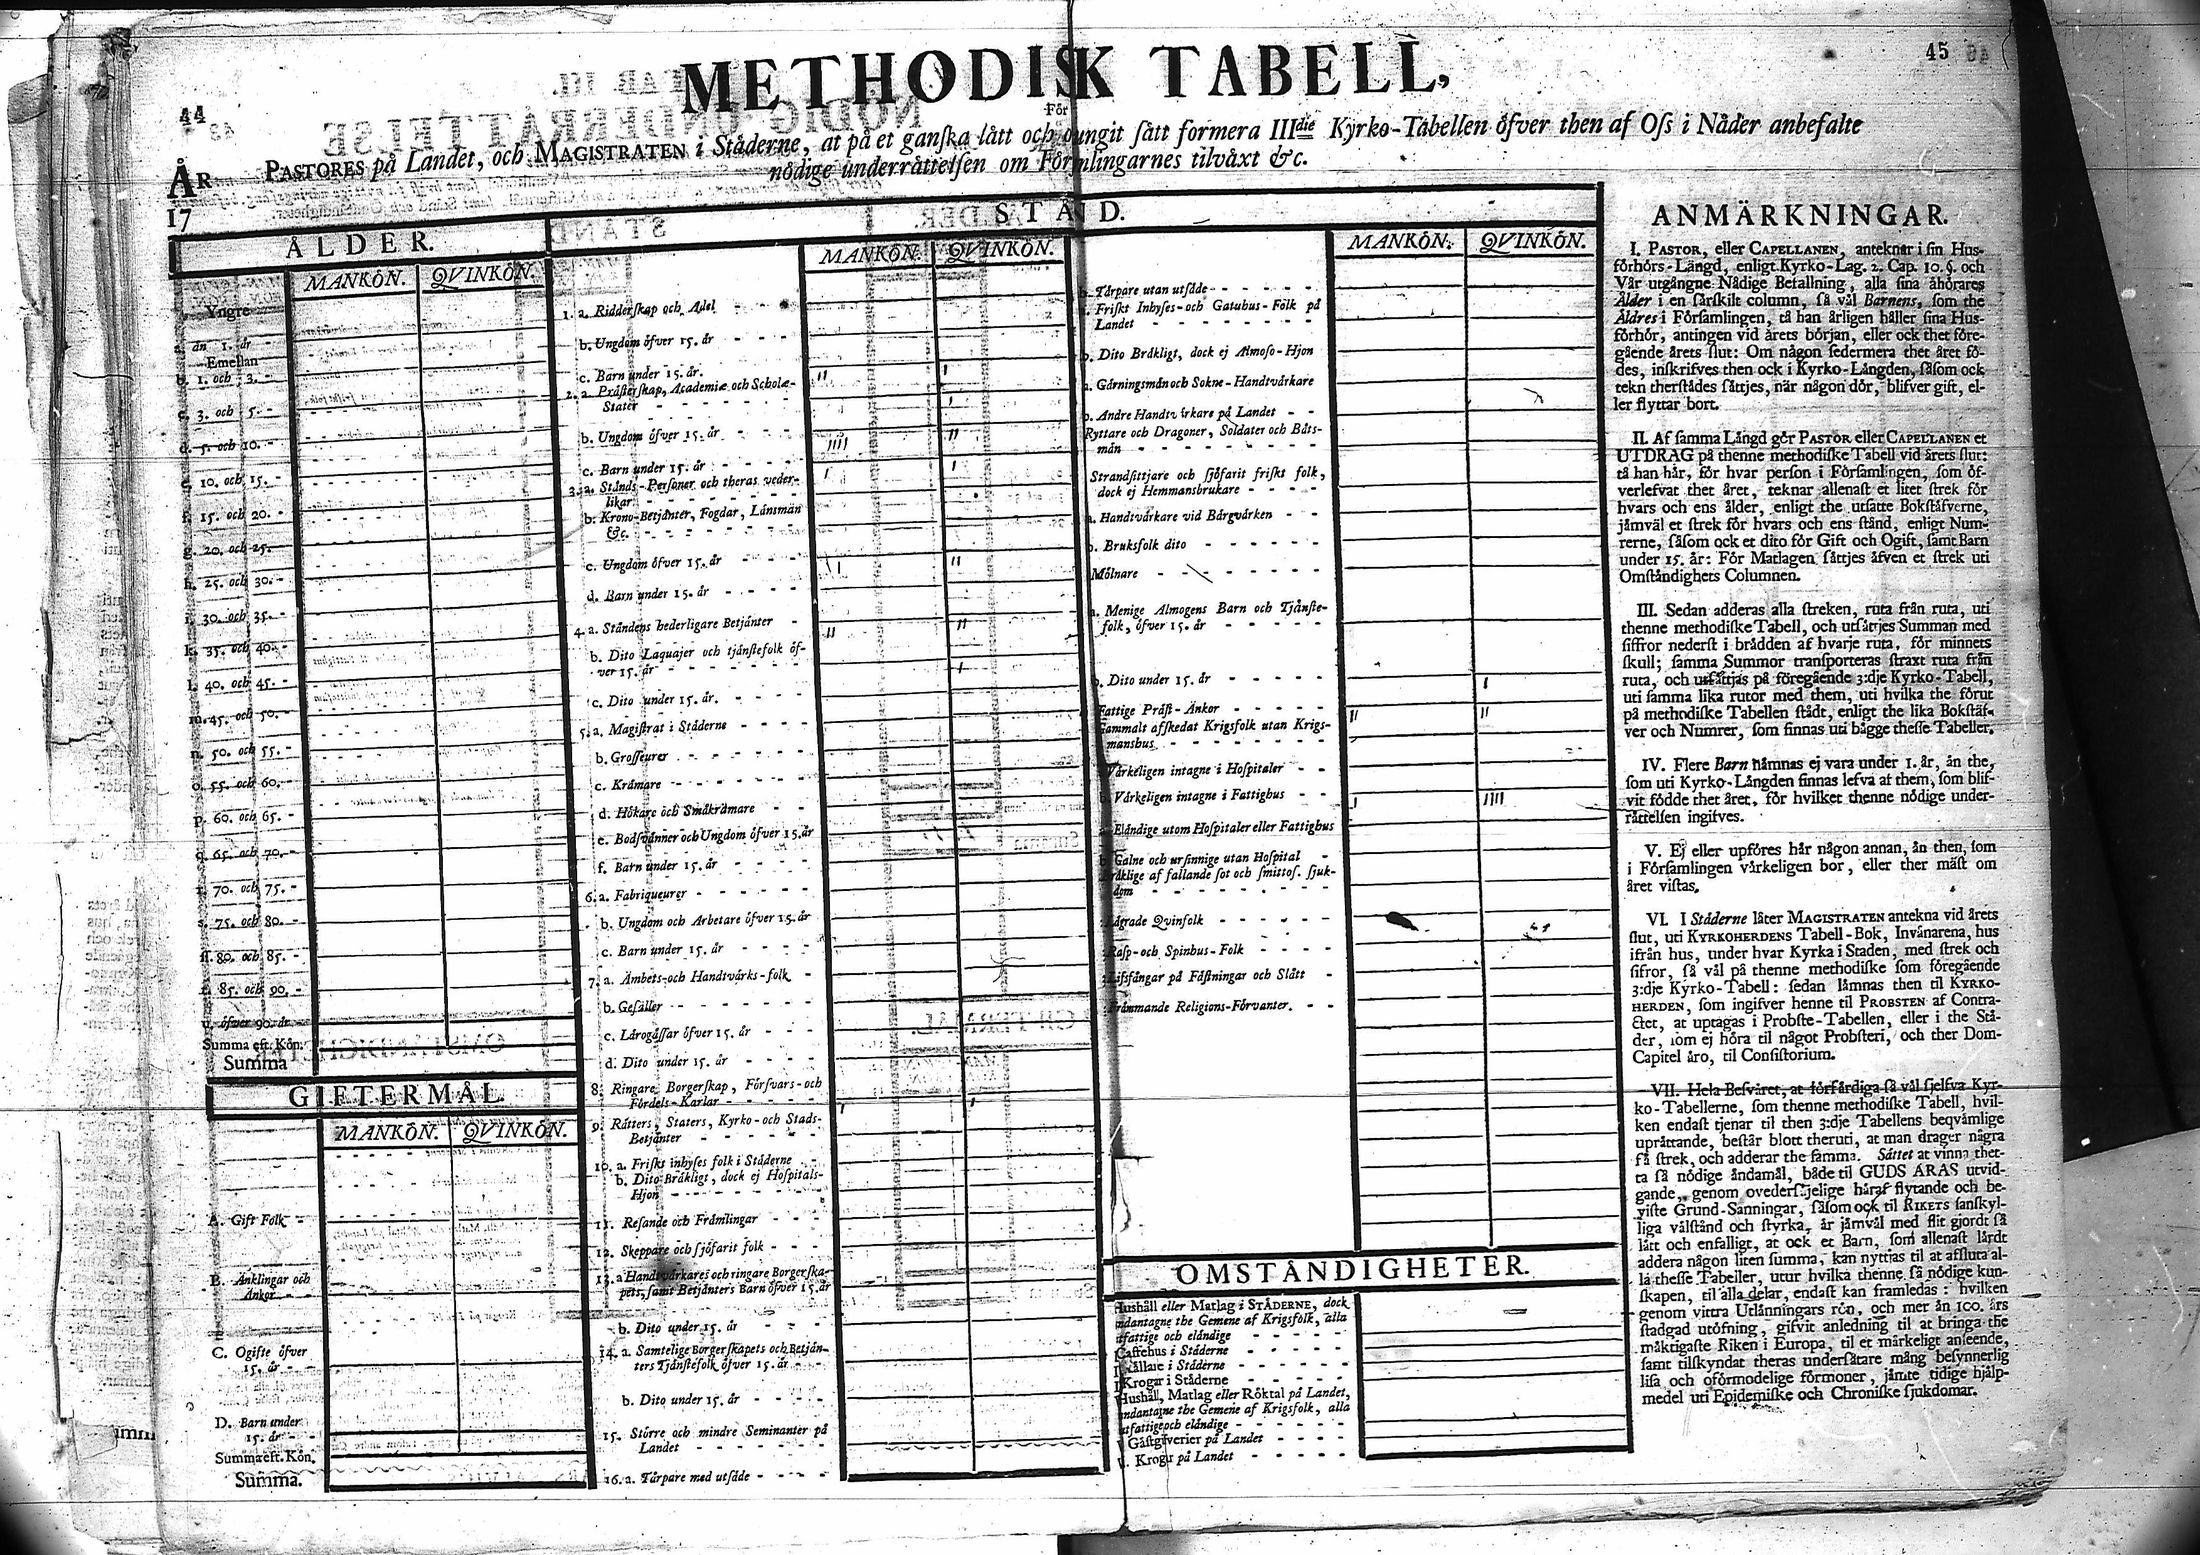 44
45
METHODISK TABELL,
För
PASTORES på Landet, och MAGISTRATEN i Städerne, at på et ganska lätt och otungit sätt formera IIIdie Kyrko-Tabellen öfver then af Oss i Nåder anbefalte
nödige underrättelsen om Församlingarnes tilväxt &c.
ÅR
17
ÅLDER.
MANKÖN. QVINKÖN.
Yngre
a. än 1. år
Emellan
b. 1. och 3. -
c. 3. och 5. -
d. 5. och 10. -
e. 10. och 15. -
f. 15. och 20. -
g. 20. och 25. -
h. 25. och 30. -
i. 30. och 35. -
k. 35. och 40. -
l. 40. och 45. -
m. 45. och 50. -
n. 50. och 55. -
o. 55. och 60. -
p. 60. och 65. -
q. 65. och 70. -
r. 70. och 75. -
s. 75. och 80. -
ſſ. 80. och 85. -
t. 85. och 90. -
u. öfver 90. år -
Summa eft. Kön.
Summa
GIFTERMÅL.
MANKÖN. QVINKÖN.
A. Gift Folk -
B. Änklingar och
Änkor - -
C. Ogifte öfver
15. år - -
D. Barn under
15. år - -
Summa eft. Kön.
Summa.
STÅND.
MANKÖN. QVINKÖN.
1. a. Ridderskap och Adel - -
b. Ungdom öfver 15. år - - - -
c. Barn under 15. år. - - - -
2. a. Prästerskap, Academiæ och Scholæ-
Stater - - - - - -
b. Ungdom öfver 15. år - - - -
c. Barn under 15. år - - - - -
3. a. Stånds-Personer och theras veder-
likar - - - - - -
b. Krono-Betjänter, Fogdar, Länsmän
&c. - - - - - - -
c. Ungdom öfver 15. år - - - -
d. Barn under 15. år - - - - -
4. a. Ståndens hederligare Betjänter -
b. Dito Laquajer och tjänstefolk öf-
ver 15. år - - - - - -
c. Dito under 15. år. - - - -
5. a. Magistrat i Städerne - - - -
b. Grosseurer - - - - - -
c. Krämare - - - - - - -
d. Hökare och Småkrämare - - -
e. Bodsvänner och Ungdom öfver 15. år
f. Barn under 15. år - - - -
6. a. Fabriqueurer - - - - - -
b. Ungdom och Arbetare öfver 15. år
c. Barn under 15. år - - - -
7. a. Ämbets-och Handtvärks-folk -
b. Gesäller - - - - - - -
c. Lärogåssar öfver 15. år - - -
d. Dito under 15. år - - - -
8. Ringare Borgerskap, Försvars-och
Fördels-Karlar - - - - -
9. Rätters, Staters, Kyrko-och Stads-
Betjänter - - - - - -
10. a. Friskt inhyses folk i Städerne - -
b. Dito Bräkligt, dock ej Hospitals-
Hjon - - - - - - -
11. Resande och Främlingar - - -
12. Skeppare och sjöfarit folk - - -
13. a Handtvärkares och ringare Borgerska-
pets, samt Betjänters Barn öfver 15. år
b. Dito under 15. år - - - -
14. a. Samtelige Borgerskapets och Betjän-
ters Tjänstefolk öfver 15. år - -
b. Dito under 15. år - - - -
15. Större och mindre Seminanter på
Landet - - - - - -
16. a. Tårpare med utsäde - - - -
MANKÖN. QVINKÖN.
b. Tårpare utan utsäde - - - - - -
Friskt Inhyses-och Gatuhus-Folk på
Landet - - - - - - -
b. Dito Bräkligt, dock ej Almoso-Hjon
a. Gärningsmän och Sokne-Handtvärkare
b. Andre Handtvärkare på Landet - -
Ryttare och Dragoner, Soldater och Båts-
män - - - - - - - -
Strandsittjare och sjöfarit friskt folk,
dock ej Hemmansbrukare - - - -
a. Handtvärkare vid Bärgvärken - -
b. Bruksfolk dito - - - - - -
Mölnare - - - - - - -
a. Menige Almogens Barn och Tjänste-
folk, öfver 15. år - - - - -
b. Dito under 15. år - - - - -
Fattige Präst-Änkor - - - - -
Gammalt afskedat Krigsfolk utan Krigs-
manshus - - - - - - -
Värkeligen intagne i Hospitaler - -
b. Värkeligen intagne i Fattighus - -
Eländige utom Hospitaler eller Fattighus
b. Galne och ursinnige utan Hospital -
Bräklige af fallande sot och smittos. sjuk-
dom - - - - - - - -
Lägrade Qvinfolk - - - - - -
Rasp-och Spinhus-Folk - - - -
Lifsfångar på Fästningar och Slått - -
Främmande Religions-Förvanter. - -
OMSTÄNDIGHETER.
Hushåll eller Matlag i STÄDERNE, dock
undantagne the Gemene af Krigsfolk, alla
utfattige och eländige - - - - -
Caffehus i Städerne - - - - -
Källare i Städerne - - - - -
Krogar i Städerne - - - - -
Hushåll, Matlag eller Röktal på Landet,
undantagne the Gemene af Krigsfolk, alla
utfattige och eländige - - - - -
Gästgifverier på Landet - - - -
Krogar på Landet - - - - -
ANMÄRKNINGAR.
I. PASTOR, eller CAPELLANEN, anteknar i sin Hus-
förhörs-Längd, enligt Kyrko-Lag. 2. Cap. 10. §. och
Vår utgångne Nådige Befallning, alla sina åhörares
Ålder i en särskilt column, så väl Barnens, som the
Äldres i Församlingen, tå han årligen håller sina Hus-
förhör, antingen vid årets början, eller ock thet före-
gående årets slut: Om någon sedermera thet året fö-
des, inskrifves then ock i Kyrko-Längden, såsom ock
tekn therstädes sättjes, när någon dör, blifver gift, el-
ler flyttar bort.
II. Af samma Längd gör PASTOR eller CAPELLANEN et
UTDRAG på thenne methodiske Tabell vid årets slut:
tå han här, för hvar person i Församlingen, som öf-
verlefvat thet året, teknar allenast et litet strek för
hvars och ens ålder, enligt the utsatte Bokstäfverne,
jämväl et strek för hvars och ens stånd, enligt Num-
rerne, såsom ock et dito för Gift och Ogift, samt Barn
under 15. år: För Matlagen sättjes äfven et strek uti
Omständighets Columnen.
III. Sedan adderas alla streken, ruta från ruta, uti
thenne methodiske Tabell, och utsättjes Summan med
siffror nederst i brädden af hvarje ruta, för minnets
skull; samma Summor transporteras straxt ruta från
ruta, och utsättjas på föregående 3:dje Kyrko-Tabell,
uti samma lika rutor med them, uti hvilka the förut
på methodiske Tabellen stådt, enligt the lika Bokstäf-
ver och Numrer, som finnas uti bägge thesse Tabeller.
IV. Flere Barn nämnas ej vara under 1. år, än the,
som uti Kyrko-Längden finnas lefva af them, som blif-
vit födde thet året, för hvilket thenne nödige under-
rättelsen ingifves.
V. Ej eller upföres här någon annan, än then, som
i Församlingen värkeligen bor, eller ther mäst om
året vistas.
VI. I Städerne låter MAGISTRATEN antekna vid årets
slut, uti KYRKOHERDENS Tabell-Bok, Invånarena, hus
ifrån hus, under hvar Kyrka i Staden, med strek och
sifror, så väl på thenne methodiske som föregående
3:dje Kyrko-Tabell: sedan lämnas then til KYRKO-
HERDEN, som ingifver henne til PROBSTEN af Contra-
ctet, at uptagas i Probste-Tabellen, eller i the Stä-
der, som ej höra til något Probsteri, och ther Dom-
Capitel äro, til Consistorium.
VII. Hela Besväret, at förfärdiga så väl sjelfva Kyr-
ko-Tabellerne, som thenne methodiske Tabell, hvil-
ken endast tjenar til then 3:dje Tabellens beqvämlige
uprättande, består blott theruti, at man drager några
få strek, och adderar the samma. Sättet at vinna thet-
ta så nödige ändamål, både til GUDS ÄRAS utvid-
gande, genom ovedersäjelige häraf flytande och be-
viste Grund-Sanningar, såsom ock til RIKETS sanskyl-
liga välstånd och styrka, är jämväl med flit gjordt så
lätt och enfalligt, at ock et Barn, som allenast lärdt
addera någon liten summa, kan nyttjas til at afsluta al-
la thesse Tabeller, utur hvilka thenne så nödige kun-
skapen, til alla delar, endast kan framledas: hvilken
genom vittra Utlänningars rön, och mer än 100. års
stadgad utöfning, gifvit anledning til at bringa the
mäktigaste Riken i Europa, til et märkeligt anseende,
samt tilskyndat theras undersåtare mång besynnerlig
lisa och oförmodelige förmoner, jämte tidige hjälp-
medel uti Epidemiske och Chroniske sjukdomar.